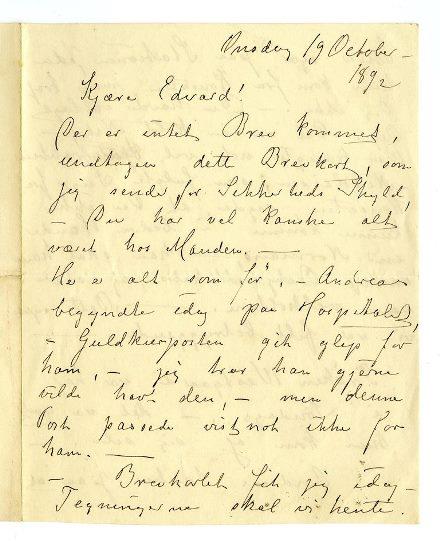 Onsdag 19 October -
1892
Kjære Edvard!
Der er intet Brev kommet,
undtagen dette Brevkort, som
jeg sender for Sikkerheds Skyld,
- Du har vel kanske alt
været hos Manden. -
Her er alt som før, - Andreas
begyndte idag paa Hospitalet,
- Guldkurposten gik glip for
ham, - jeg tror han gjerne
vilde havt den, - men denne
Post passede vistnok ikke for
ham. -
- Brevkortet fik jeg idag -
Tegningerne skal vi hente.